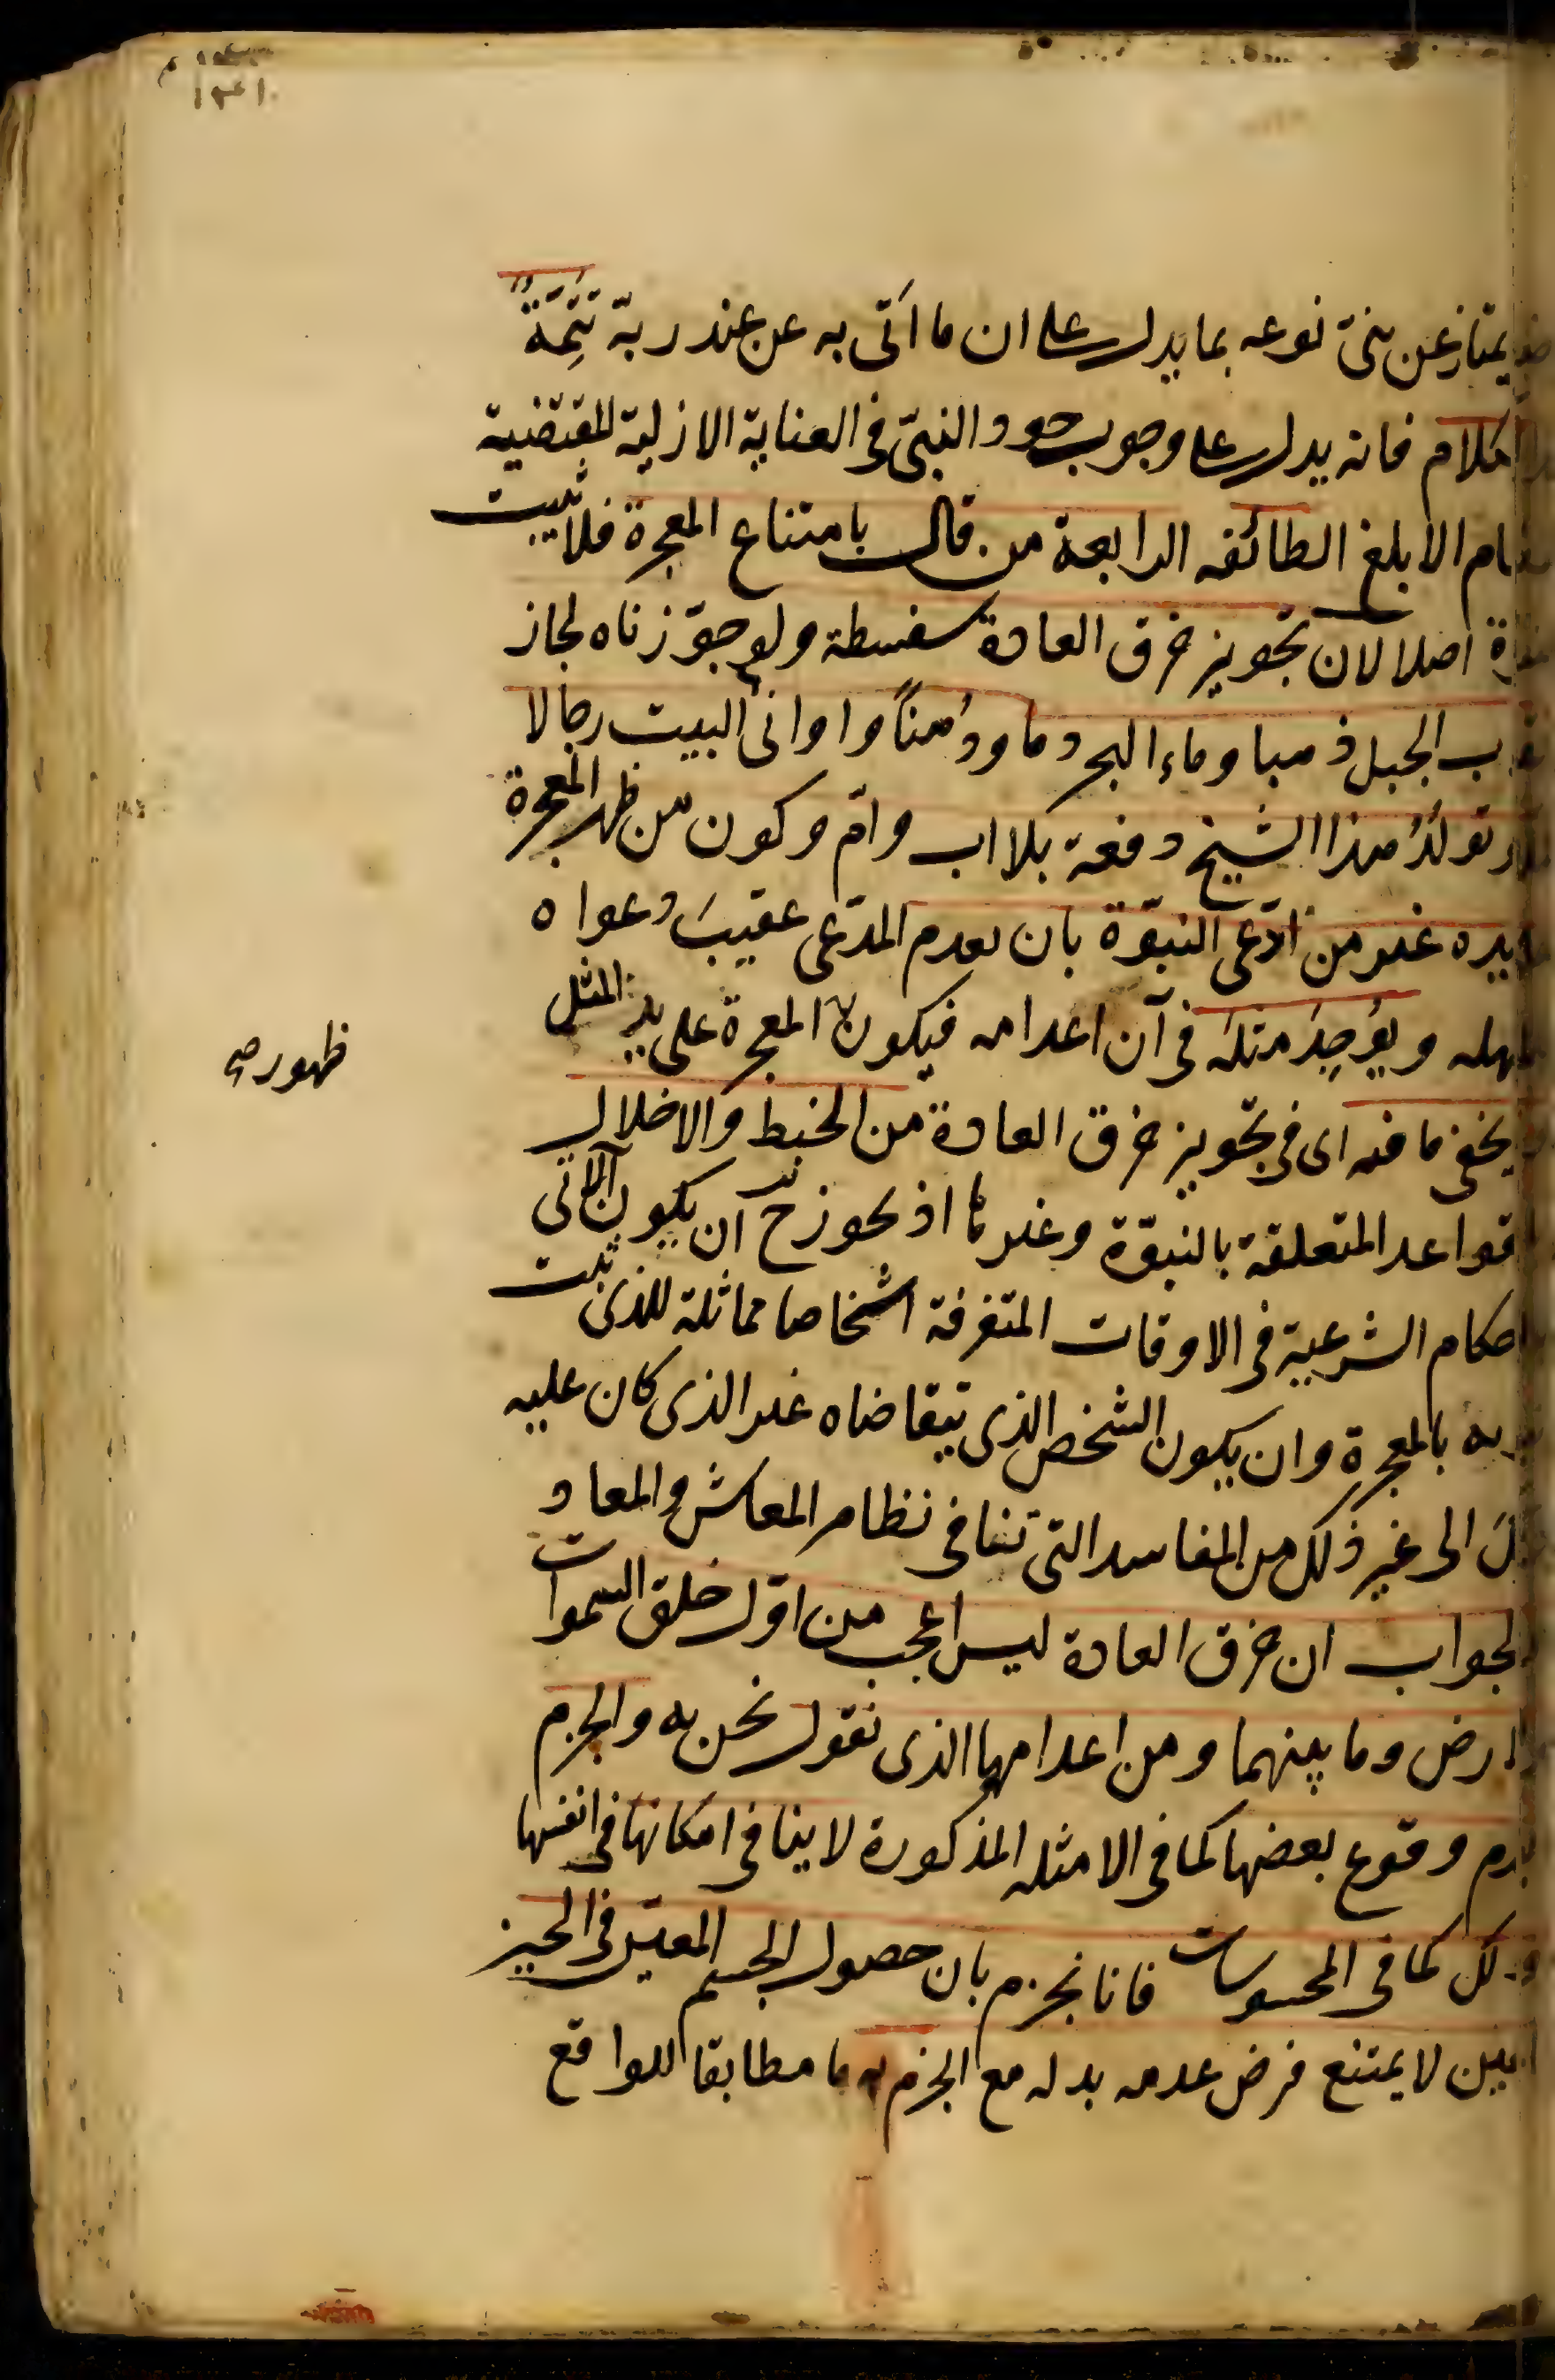 يمتاز عن بنى نوعه بما يدل على ان ما اتى به عن عند ربه تَتِمَّةٌ
الكلام فانه يدل على وجوب وجود النبىّ فى العناية الازلية المقتضية
الابلغ الطائفه الرابعة من قال بامتناع المعجزة فلا يثبت
اصلا لان تجويز خرق العادة سفسطة ولو جوّزناه لجاز
الجبل ذهبا وماء البحر دما ودُهناً واوانى البيت رجالا
تولّدُ هذا الشيخ دفعة بلا اب وامّ وكون من ظهر المعجزة
يده غير من ادّعى النبوّة بان يعدم المدّعى عقيبَ دعواه
ويُوجِدَ مثله فى آن اعدامه فيكون المعجزة على يد المثل
ظهور صح
يخفى ما فيه اى فى تجويز خرق العادة من الخبط والاخلال
قواعد المتعلقة بالنبوّة وغيرها اذ يجوز ح ان يكون الآتى
احكام الشرعية فى الاوقات المتفرقة اشخاصا مماثلة للذى ثبت
بالمعجزة وان يكون الشخص الذى يتقاضاه غير الذى كان عليه
الى غير ذلك من المفاسد التى تنافى نظام المعاش والمعاد
الجواب ان خرق العادة ليس اعجب من اول خلق السموات
الارض وما بينهما ومن اعدامها الذى نقول نحن به والجزم
بعدم وقوع بعضها كما فى الامثله المذكورة لا ينافى امكانها فى انفسها
وذلك كما فى المحسوسات فانا نجزم بان حصول الجسم المعيّن فى الحيز
لا يمتنع فرض عدمه بدله مع الجزم به مطابقا للواقع